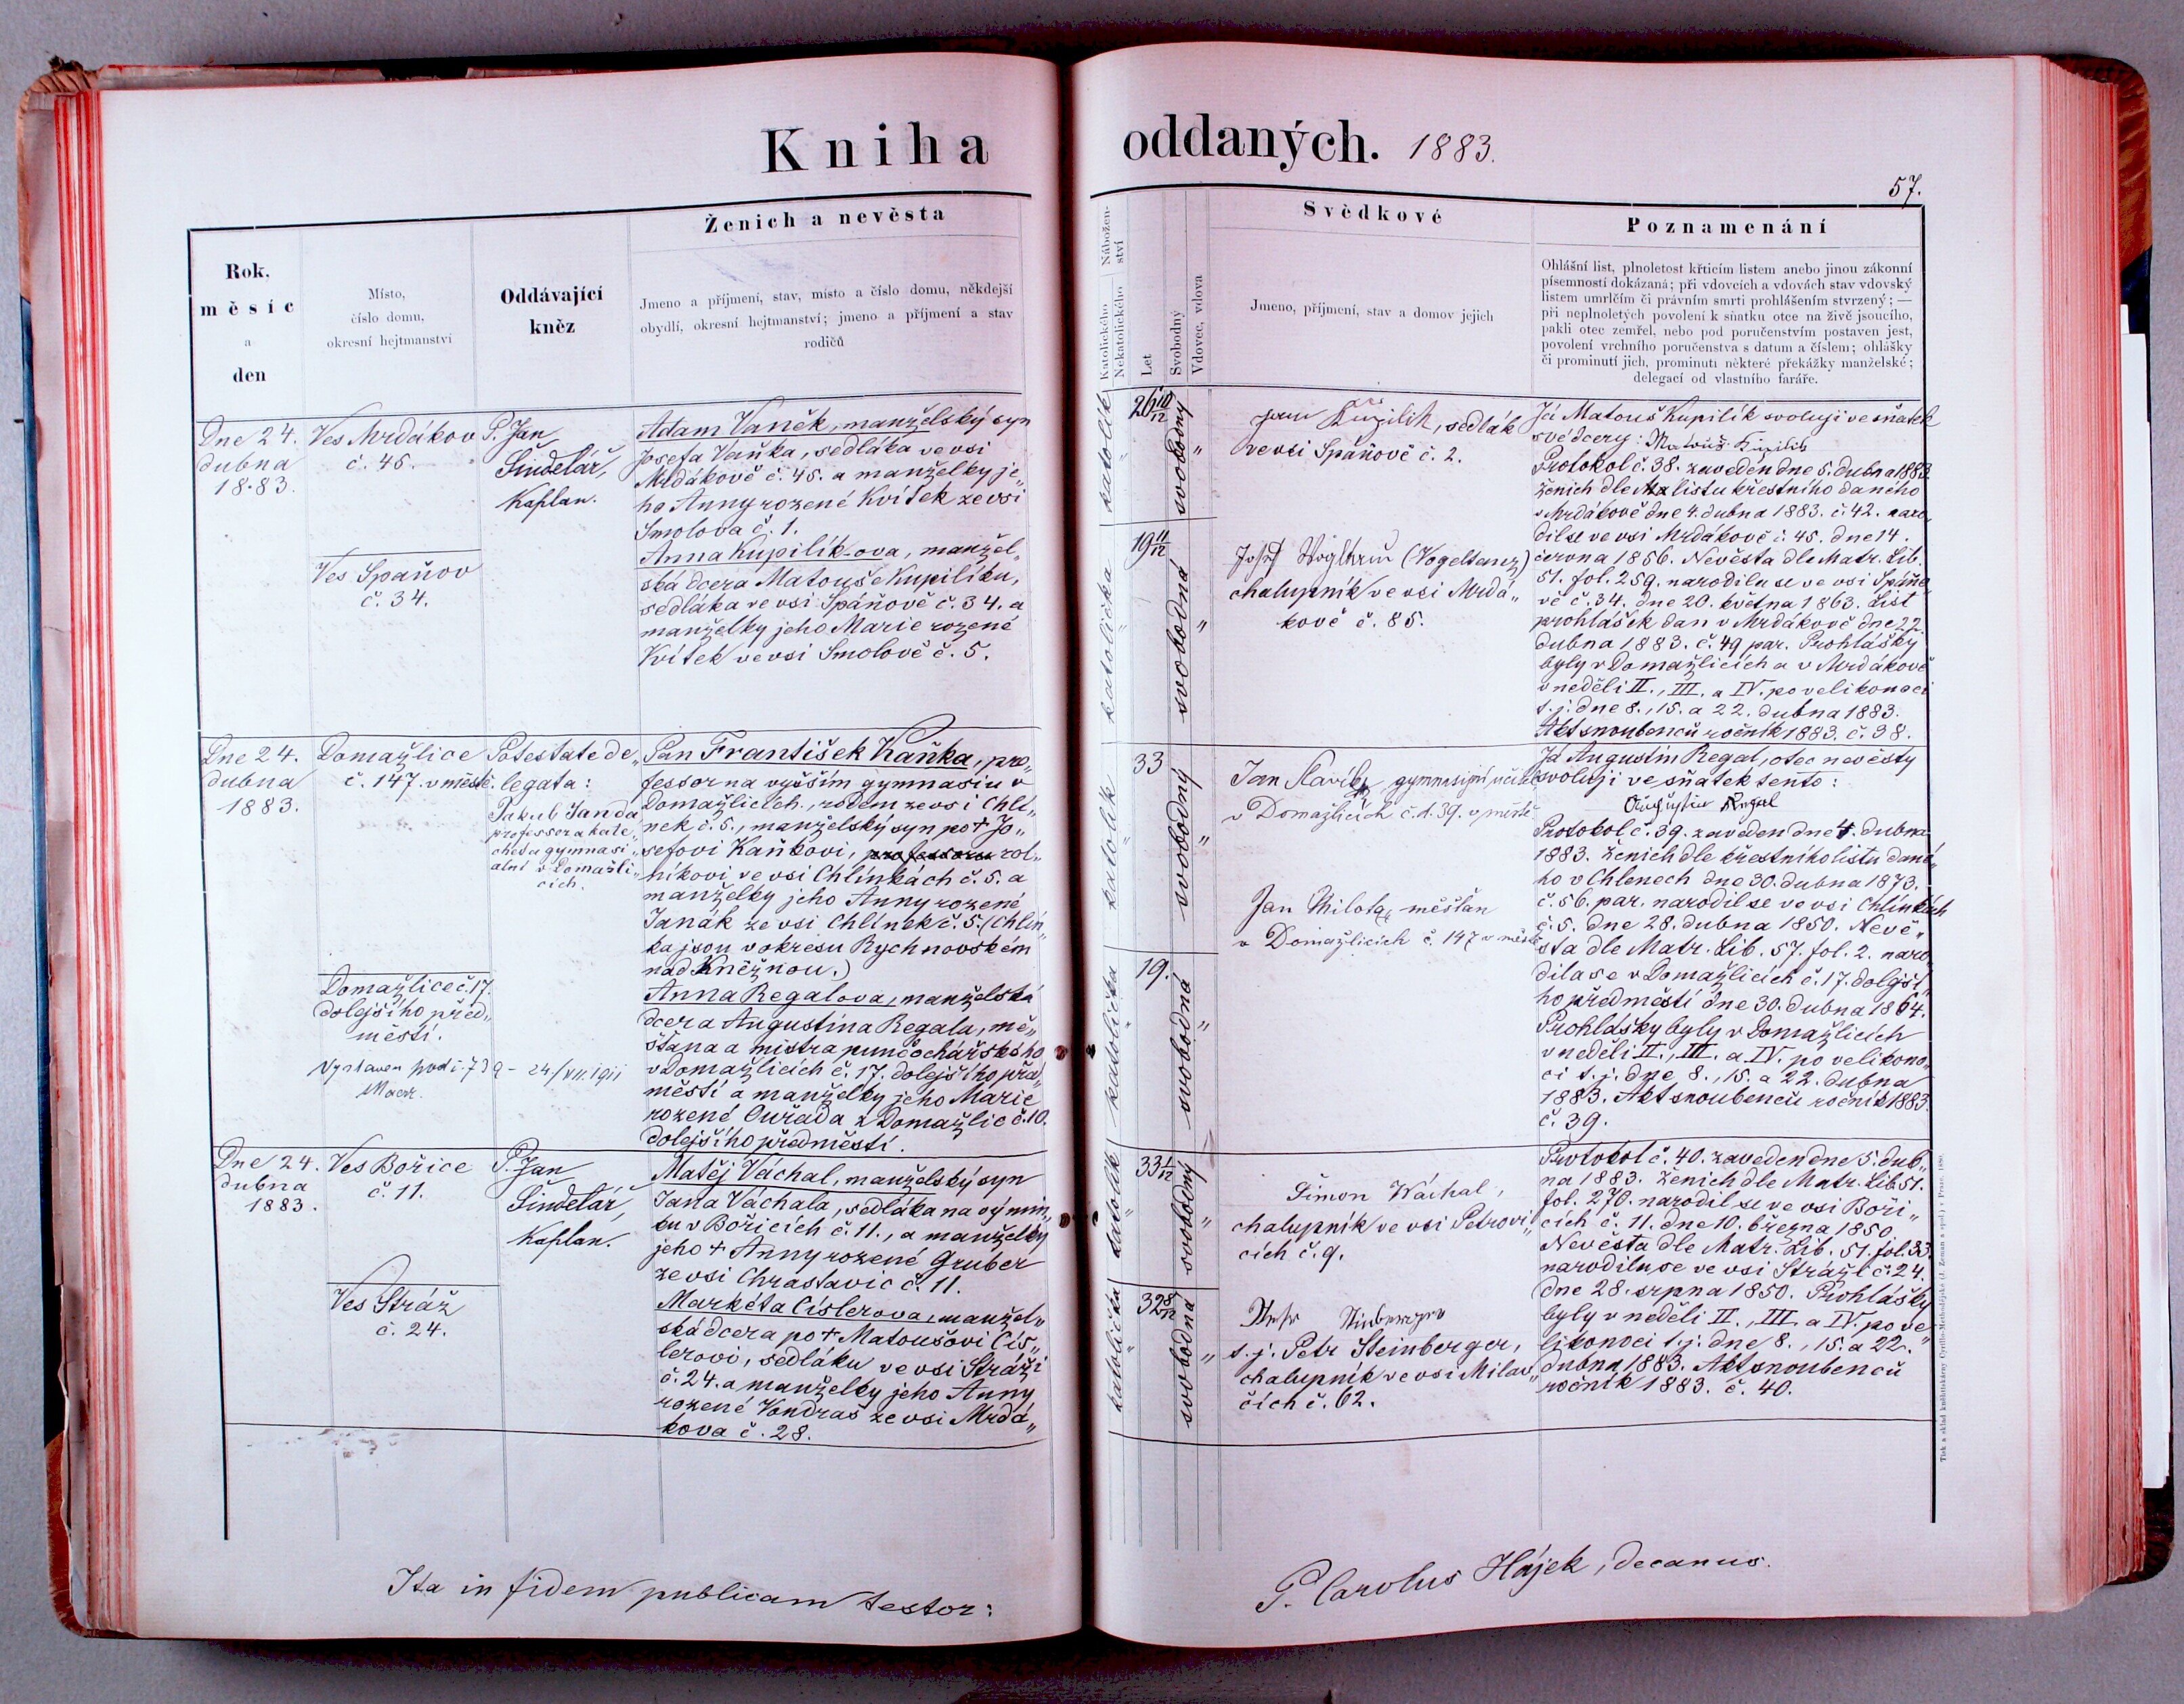 Kniha oddaných. 1883.
57.
Rok, měsíc a den
Místo, číslo domu, okresní hejtmanství
Oddávající kněz
Ženich a nevěsta
Jmeno a příjmení, stav, místo a číslo domu, někdejší
obydlí, okresní hejtmanství; jmeno a příjmení a stav
rodičů
Nábožen-
ství
Katolického
Nekatolického
Let
Svobodný
Vdovec, vdova
Svědkové
Jmeno, příjmení, stav a domov jejich
Poznamenání
Ohlášní list, plnoletost křticím listem anebo jinou zákonní
písemností dokázaná; při vdovcích a vdovách stav vdovský
listem umrlčím či právním smrti prohlášením stvrzený; —
při neplnoletých povolení k sňatku otce na živě jsoucího,
pakli otec zemřel, nebo pod poručenstvím postaven jest,
povolení vrchního poručenstva s datum a číslem; ohlášky
či prominutí jich, prominutí některé překážky manželské;
delegací od vlastního faráře.
Dne 24.
dubna
1883.
Ves Mrdákov
č. 45.
Ves Spaňov
č. 34.
P. Jan
Šindelář,
Kaplan.
Adam Vaněk, manželský syn
Josefa Vaňka, sedláka ve vsi
Mrdákově č. 45. a manželky je„
ho Anny rozené Kvítek ze vsi
Smolova č. 1.
Anna Kupilík-ova, manžel„
ská dcera Matouše Kupilíka,
sedláka ve vsi Spáňově č. 34. a
manželky jeho Marie rozené
Kvítek ve vsi Smolově č. 5.
katolík
26 10/12
svobodný
katolička
19 11/12
svobodná
Jan Kupilik, sedlák
ve vsi Spáňově č. 2.
Josef (Vogeltanz)
chalupník ve vsi Mrdá„
kově č. 85.
Já Matouš Kupilík svoluji ve sňatek
své dcery: Matouš Kupilik
Protokol č. 38. zaveden dne 5. dubna 1883.
Ženich dle listu křestního daného
v Mrdákově dne 4. dubna 1883. č. 42. naro„
dil se ve vsi Mrdákově č. 45. dne 14.
června 1856. Nevěsta dle Matr. Lib.
51. fol. 259. narodila se ve vsi Spáňo„
vě č. 34. dne 20. května 1863. List
prohlášek dan v Mrdákově dne 22.
dubna 1883. č. 49 par. Prohlášky
byly v Domažlicích a v Mrdákově
v neděli II., III. a IV. po velikonoci
t. j. dne 8., 15. a 22. dubna 1883.
Akt snoubenců ročník 1883. č. 38.
Dne 24.
dubna
1883.
Domažlice
č. 147. v městě.
Domažlice č. 17.
dolejšího před„
městí.
Potestate de„
legata:
Jakub Janda
professor a kate„
cheta gymnasi„
ální v Domažli„
cích.
Pan František Kaňka, pro„
fessor na vyšším gymnasiu v
Domažlicích, rodem ze vsi Chlí„
nek č. 5., manželský syn po † Jo„
sefovi Kaňkovi, professoru rol„
níkovi ve vsi Chlínkách č. 5. a
manželky jeho Anny rozené
Janák ze vsi Chlínek č. 5. (Chlín„
ka jsou v okresu Rychnovském
nad Kněžnou.)
Anna Regalova, manželská
dcera Augustina Regala, mě„
šťana a mistra punčochářského
v Domažlicích č. 17. dolejšího před„
městí a manželky jeho Marie
rozené Ouřada z Domažlic č. 10.
dolejšího předměstí.
Vystaven pod č. 739 - 24./VII. 1911
katolík
33
svobodný
katolička
19.
svobodná
Jan Slavík, gymnasijní učitel
v Domažlicích č. d. 39. v městě
Jan Milota, měšťan
v Domažlicích č. 147 v městě
Já Augustin Regal, otec nevěsty
svoluji ve sňatek tento:
Augustin Regal
Protokol č. 39. zaveden dne 4. dubna
1883. Ženich dle křestního listu dané„
ho v Chlenech dne 30. dubna 1873.
č. 56. par. narodil se ve vsi Chlínkách
č. 5. dne 28. dubna 1850. Nevě„
sta dle Matr. Lib. 57. fol. 2. naro„
dila se v Domažlicích č. 17. dolejší„
ho předměstí dne 30. dubna 1864.
Prohlášky byly v Domažlicích
v neděli II., III. a IV. po velikono„
ci t. j. dne 8., 15. a 22. dubna
1883. Akt snoubenců ročník 1883
č. 39.
Dne 24.
dubna
1883.
Ves Bořice
č. 11.
Ves Stráž
č. 24.
P. Jan
Šindelář,
Kaplan.
Matěj Váchal, manželský syn
Jana Váchala, sedláka na výmin„
ku v Bořicích č. 11., a manželky
jeho † Anny rozené Gruber
ze vsi Chrastavic č. 11.
Markéta Císlerova, manžel„
ská dcera po † Matoušovi Cís„
lerovi, sedláku ve vsi Stráži
č. 24. a manželky jeho Anny
rozené Vondraš ze vsi Mrdá„
kova č. 28.
katolík
33 1/12
svobodný
katolička
32 8/12
svobodná
Šimon Wáchal,
chalupník ve vsi Petrovi„
cích č. 9.
t. j. Petr Steinberger,
chalupník ve vsi Milav„
čích č. 62.
Protokol č. 40. zaveden dne 5. dub„
na 1883. Ženich dle Matr. Lib. 51.
fol. 270. narodil se ve vsi Boři„
cích č. 11. dne 10. března 1850.
Nevěsta dle Matr. Lib. 51. fol. 33.
narodila se ve vsi Stráži č. 24.
dne 28. srpna 1850. Prohlášky
byly v neděli II., III. a IV. po ve„
likonoci t. j. dne 8., 15. a 22.
dubna 1883. Akt snoubenců
ročník 1883. č. 40.
Ita in fidem publicam testor:
P. Carolus Hájek, decanus.